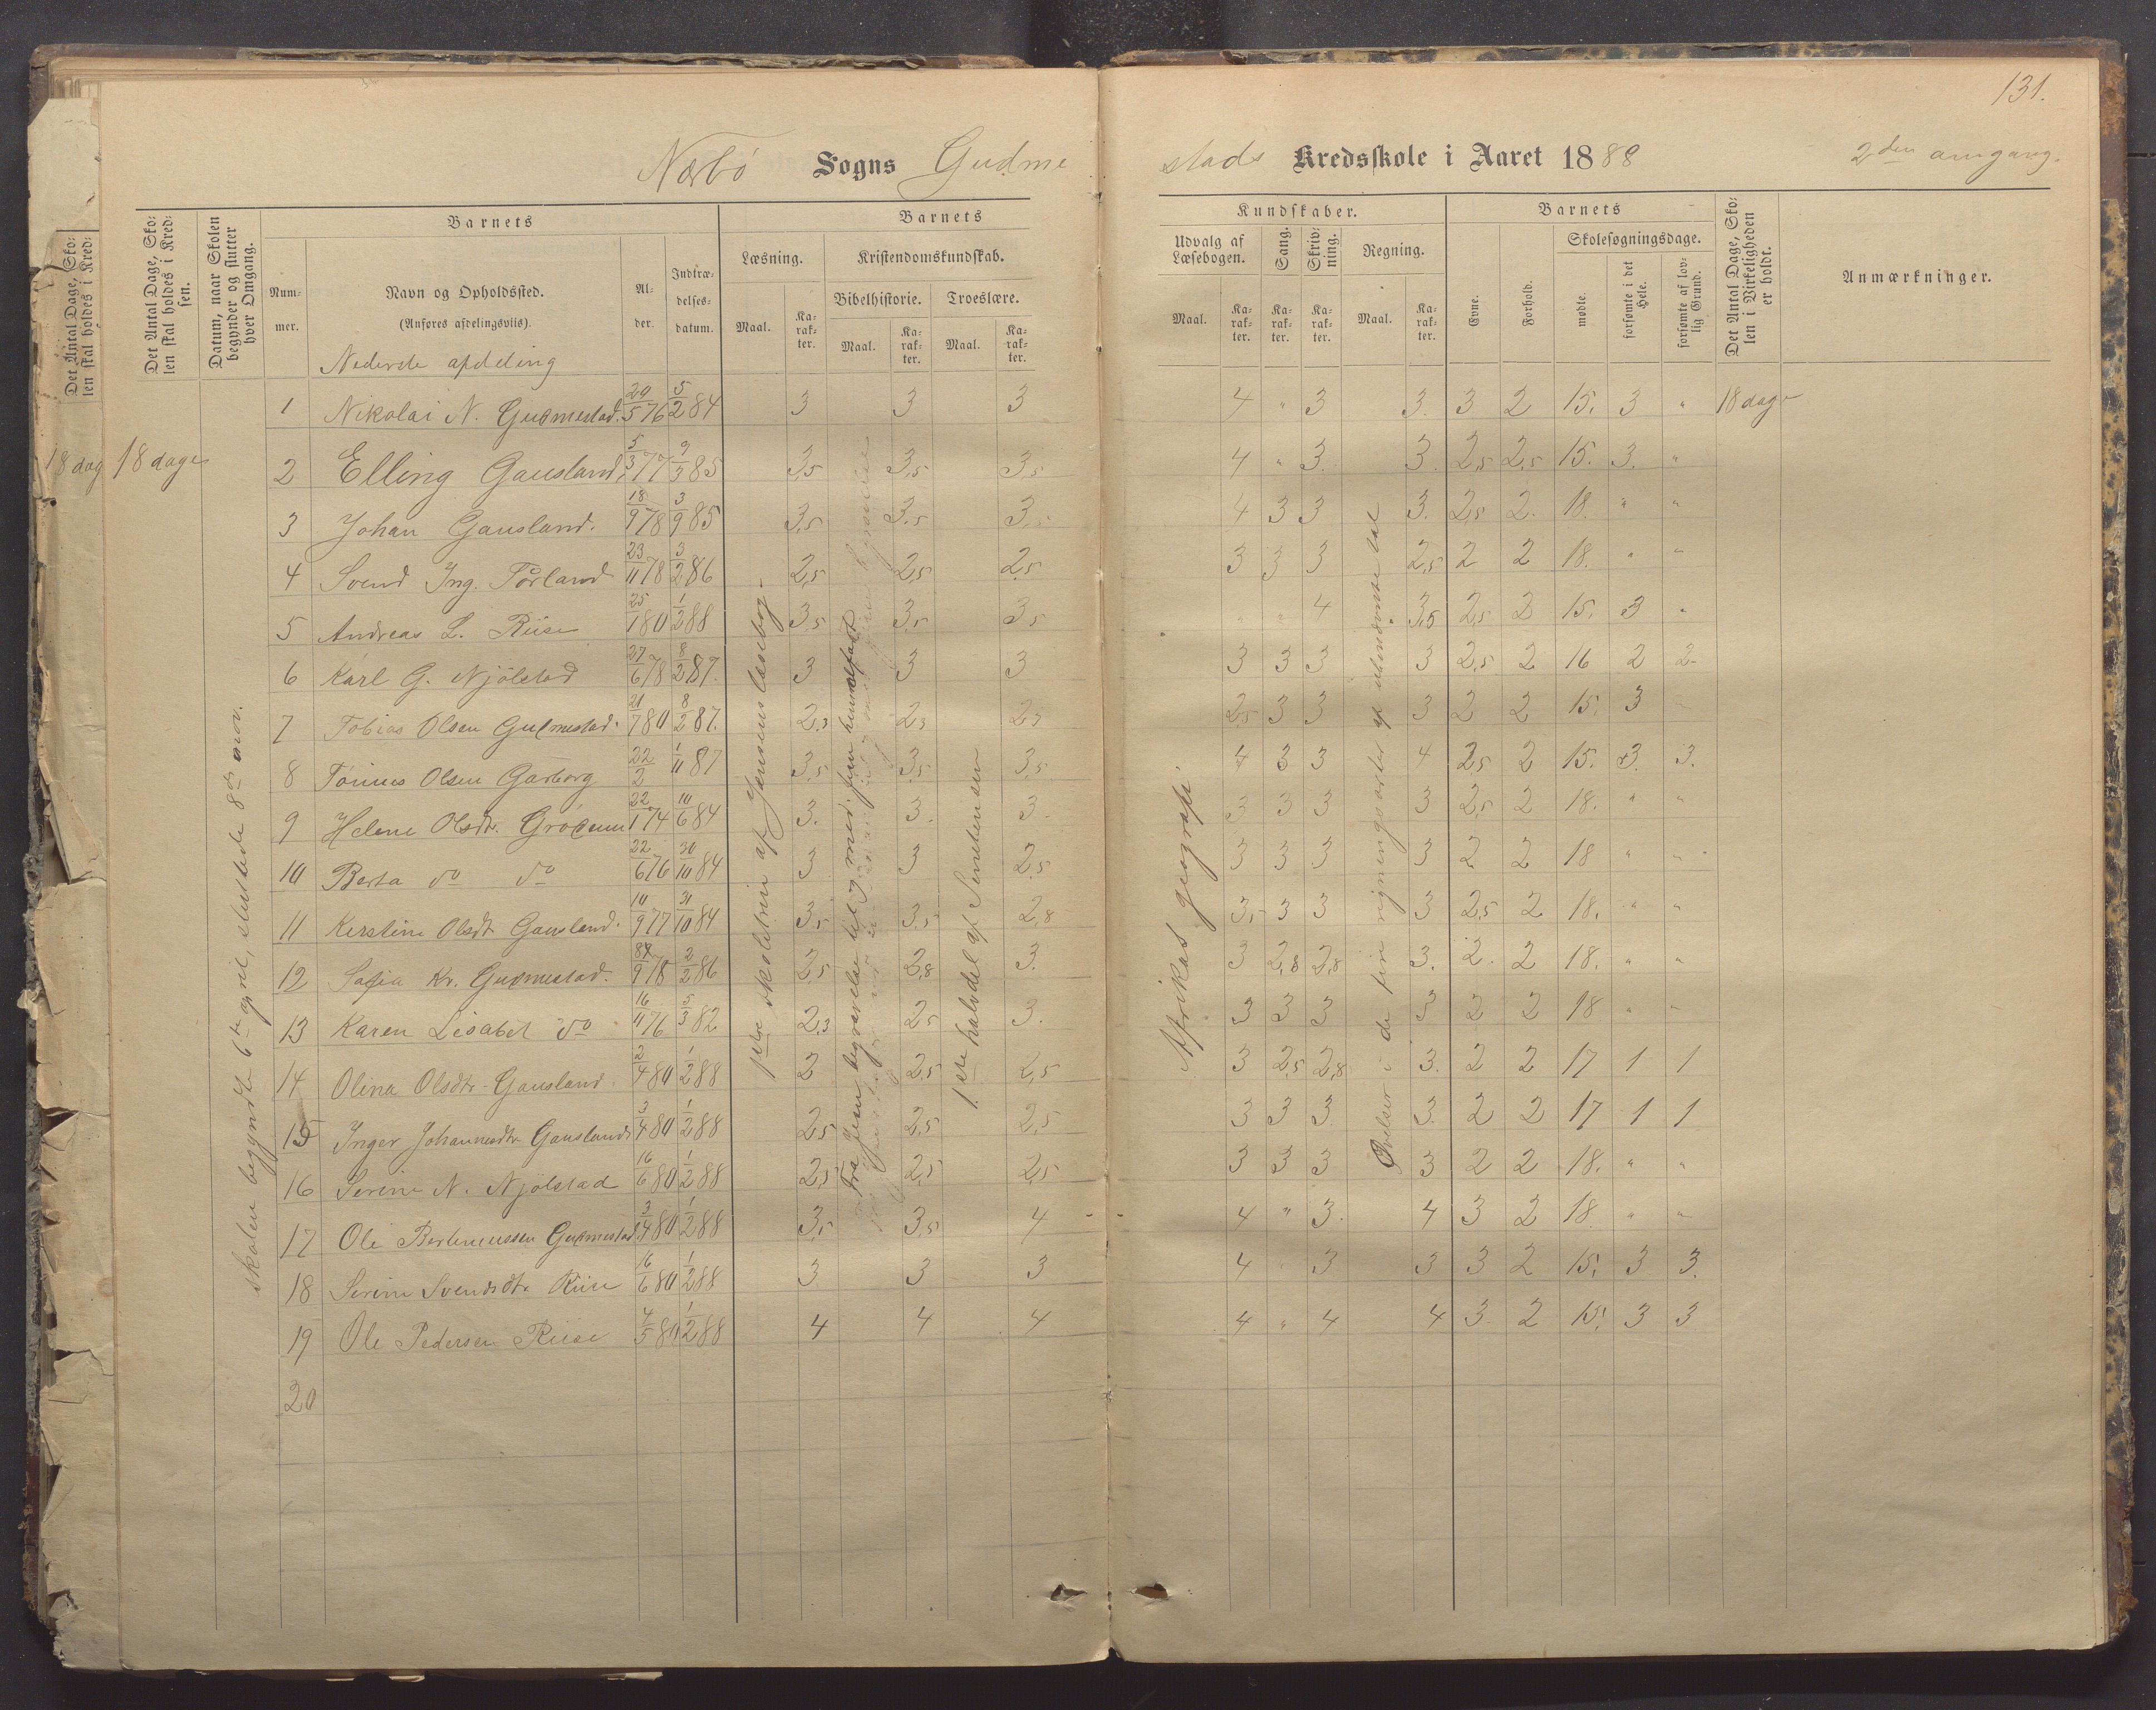 131.
Nærbø Sogns Gudme
stads Kredsskole i Aaret 1888 2den omgang.
Det Antal Dage, Sko-
len skal holdes i Kred-
Det Antal Dage, Sko-
len skal holdes i Kred-
sen.
Datum, naar Skolen
begynder og slutter
hver Omgang.
Barnets
Num-
mer.
Navn og Opholdssted.
(Anføres afdelingsviis).
Al-
der.
Indtræ-
delses-
datum.
Barnets
Læsning.
Maal.
Ka-
rak-
ter.
Kristendomskundskab.
Bibelhistorie.
Maal.
Ka-
rak-
ter.
Troeslære.
Maal.
Ka-
rak-
ter.
Kundskaber.
Udvalg af
Læsebogen.
Maal.
Ka-
rak-
ter.
Sang.
Ka-
rak-
ter.
Skriv-
ning.
Ka-
rak-
ter.
Regning.
Maal.
Ka-
rak-
ter.
Barnets
Evne.
Forhold.
Skolesøgningsdage.
mødte.
forsømte i det
Hele.
forsømte af lov-
lig Grund.
Det Antal Dage, Sko-
len i Virkeligheden
er holdt.
Anmærkninger.
Nederste afdeling
1 Nikolai N. Gudmestad. 20/5 76 5/2 84 3 3 3 4 " 3 3. 3 2 15. 3 " 18 dage
18 dag 18 dage
2 Elling Gausland. 5/3 77 9/3 85 3,5 3,5 3,5 4 " 3. 3. 2,5 2,5 15. 3. "
3 Johan Gausland. 18/9 78 3/9 85 3,5 3,5 3,5 4 3 3 3. 2,5 2. 18. " "
4 Svend Ing. Torland 23/11 78 3/2 86 2,5 2,5 2,5 3 3 3 2,5 2 2 18. " "
5 Andreas L. Riise 25/1 80 1/2 88 3,5 3,5 3,5 " " 4 3,5 2,5 2 15. 3 "
6 Karl G. Njölstad 27/6 78 8/2 87. 3 3 3 3 3 3 3 2,5 2 16 2 2
7 Tobias Olsen Gudmestad. 21/7 80 8/2 87. 2,3 2,3 2,3 2,5 3 3 3 2 2 15. 3
8 Tönnes Olsen Garborg 22/2 1/11 87 3,5 3,5 3,5 4 3 3 4 2,5 2 15. 3. 3.
9 Helene Olsdtr. Grödeum 22/1 74 10/6 84 3. 3. 3. 3 3 3 3 2,5 2 18. " "
10 Berta do do 22/6 76 30/10 84 3 3 2,5 3 3 3 3 2 2 18 " "
11 Kerstine Olsdt Gausland. 10/9 77 31/10 84 3,5 3,5 2,8 3,5 3 3 3 2,5 2 18. " "
12 Sofia Kr. Gudmestad. 9 78 2/2 86 2,5 2,8 3. 3 2,8 2,8 3. 2. 2 18. " "
13 Karen Lisabet do 16/11 76 5/3 82 2,3 2,5 3. 3 3 3 3 2 2 18 " "
14 Olina Olsdtr. Gausland. 2/4 80 1/2 88 2 2,5 2,5 3 2,5 2,8 3. 2 2 17 1 1
15 Inger Johannesdtr Gausland 3/4 80 1/2 88 2,5 2,5 2,5 3 3 3 3. 2 2 17 1 1
16 Serine N. Njölstad 16/6 80 1/2 88 2,5 2,5 2,5 3 3 3 3 2 2 18. " "
17 Ole Gudmestad 3/4 80 1/2 88 3,5 3,5 4 4 " 3. 4 3 2 18. " "
18 Serine Svendsdtr Riise 16/6 80 1/2 88 3 3 3 4 " 3 3 3 2 15. 3 3.
19 Ole Pedersen Riise 4/5 80 1/2 88 4 4 4 4 " 4 4 3. 2 15. 3 3
20
skolen begyndte 6te april, sluttede 8de
skoletrin af Jensens læsebog.
Fra Jesu begravelse til
1. ere halvdel af
Afrikas geografi.
Øvelser i de fire regningsarter af ubenævnte tal